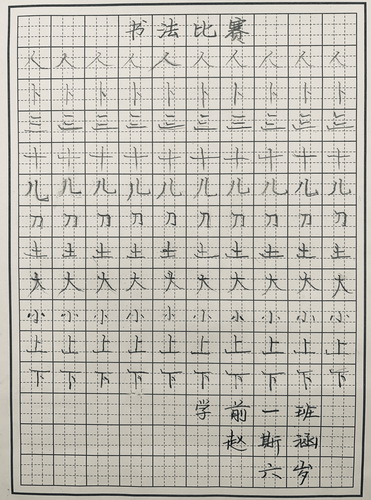 书法比赛
人人人人人人人人人人
卜卜卜卜卜卜卜卜卜卜
三三三三三三三三三三
十十十十十十十十十十
儿儿儿儿儿儿儿儿儿儿
刀刀刀刀刀刀刀刀刀刀
土土土土土土土土土土
大大大大大大大大大大
小小小小小小小小小小
上上上上上上上上上上
下下下下下下下下下下
学前一班
赵斯涵
六岁